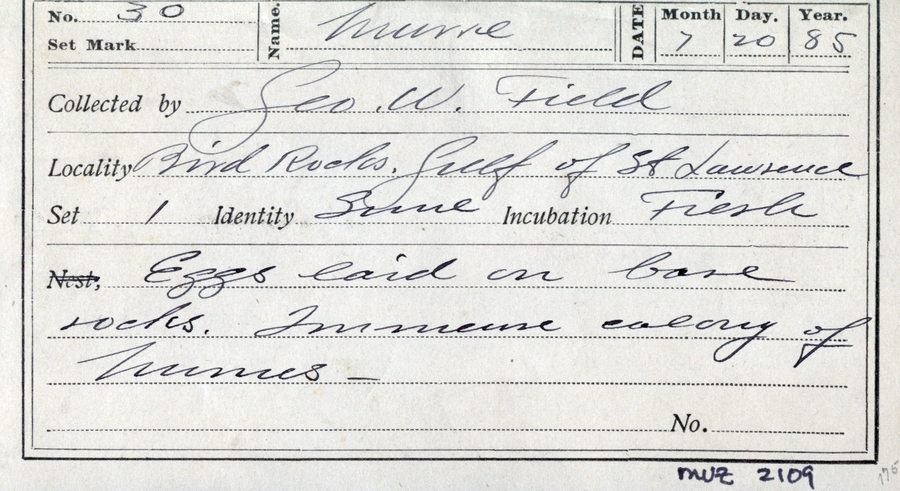 No. 30 Name. Murre DATE Month 7 Day. 20 Year. 85
Set Mark
Collected by Geo. W. Field
Locality Bird Rocks. Gulf of St Lawrence
Set 1 Identity Sure Incubation Fresh
Nest, Eggs laid on bare
rocks. Immense colony of
Murres —
No.
MVZ 2109